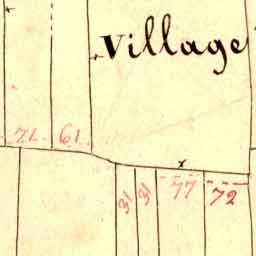 Village
71 61
31 31 77 72